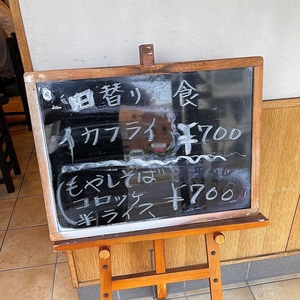 日替り定食
イカフライ ¥700
もやしそば
コロッケ
半ライス ¥700